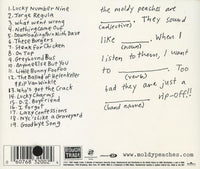 1. Lucky Number Nine
2. Jorge Regula
3. What went wrong
4. Nothing Came Out
5. Downloading Porn With Dave
6. These Burgers
7. Steak For Chicken
8. On Top
9. Greyhound Bus
10. Anyone Else But You
11. Little Bunny Foo Foo
12. The Ballad of Helen Keller & Rip Van Winkle
13. Who's got the Crack
14. Lucky Charms
15. D.2. Boyfriend
16. I Forgot
17. Lazy Confessions
18. NYC's Like a Graveyard
19. Goodbye Song
the moldy peaches are
. They sound
(adjective)
like . When I
(noun)
listen to them, I want
to . Too
(verb)
bad they are just a
rip-off!!
(band name)
www.moldypeaches.com